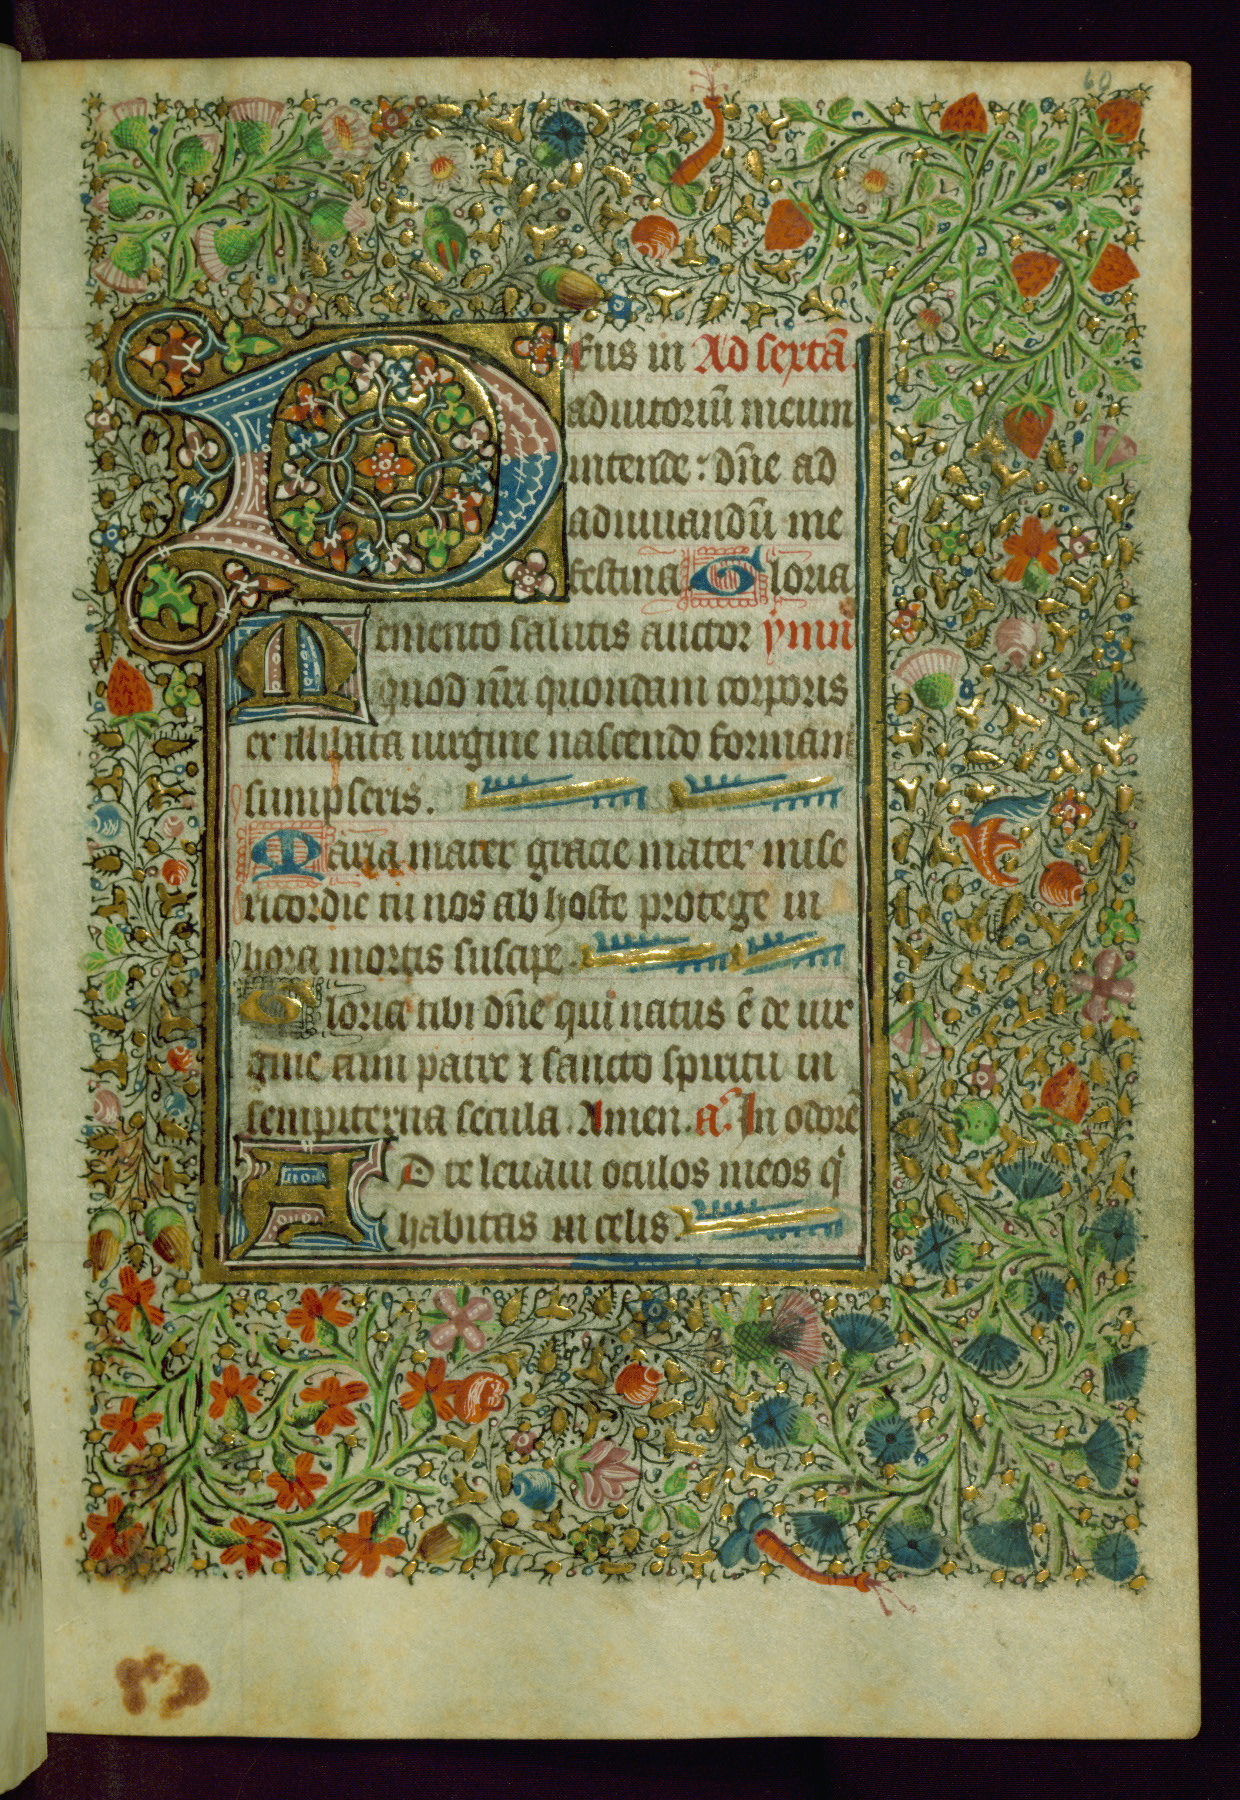 60
Deus in Ad sextā.
adiutoriū meum
intende : dn̄e ad
adiuuandū me
festina Gloria
Memento salutis auctor ymnꝰ
quod nr̄i quondam corporis
ex illibata uirgine nascendo formam
sumpseris.
Maria mater gracie mater mise
ricordie tu nos ab hoste protege in
hora mortis suscipe
Gloria tibi dn̄e qui natus ē de uir
gine cum patre ⁊ sancto spiritu in
sempiterna secula. Amen. aᵒ. In odore
AD te leuaui oculos meos q̇
habitas in celis.